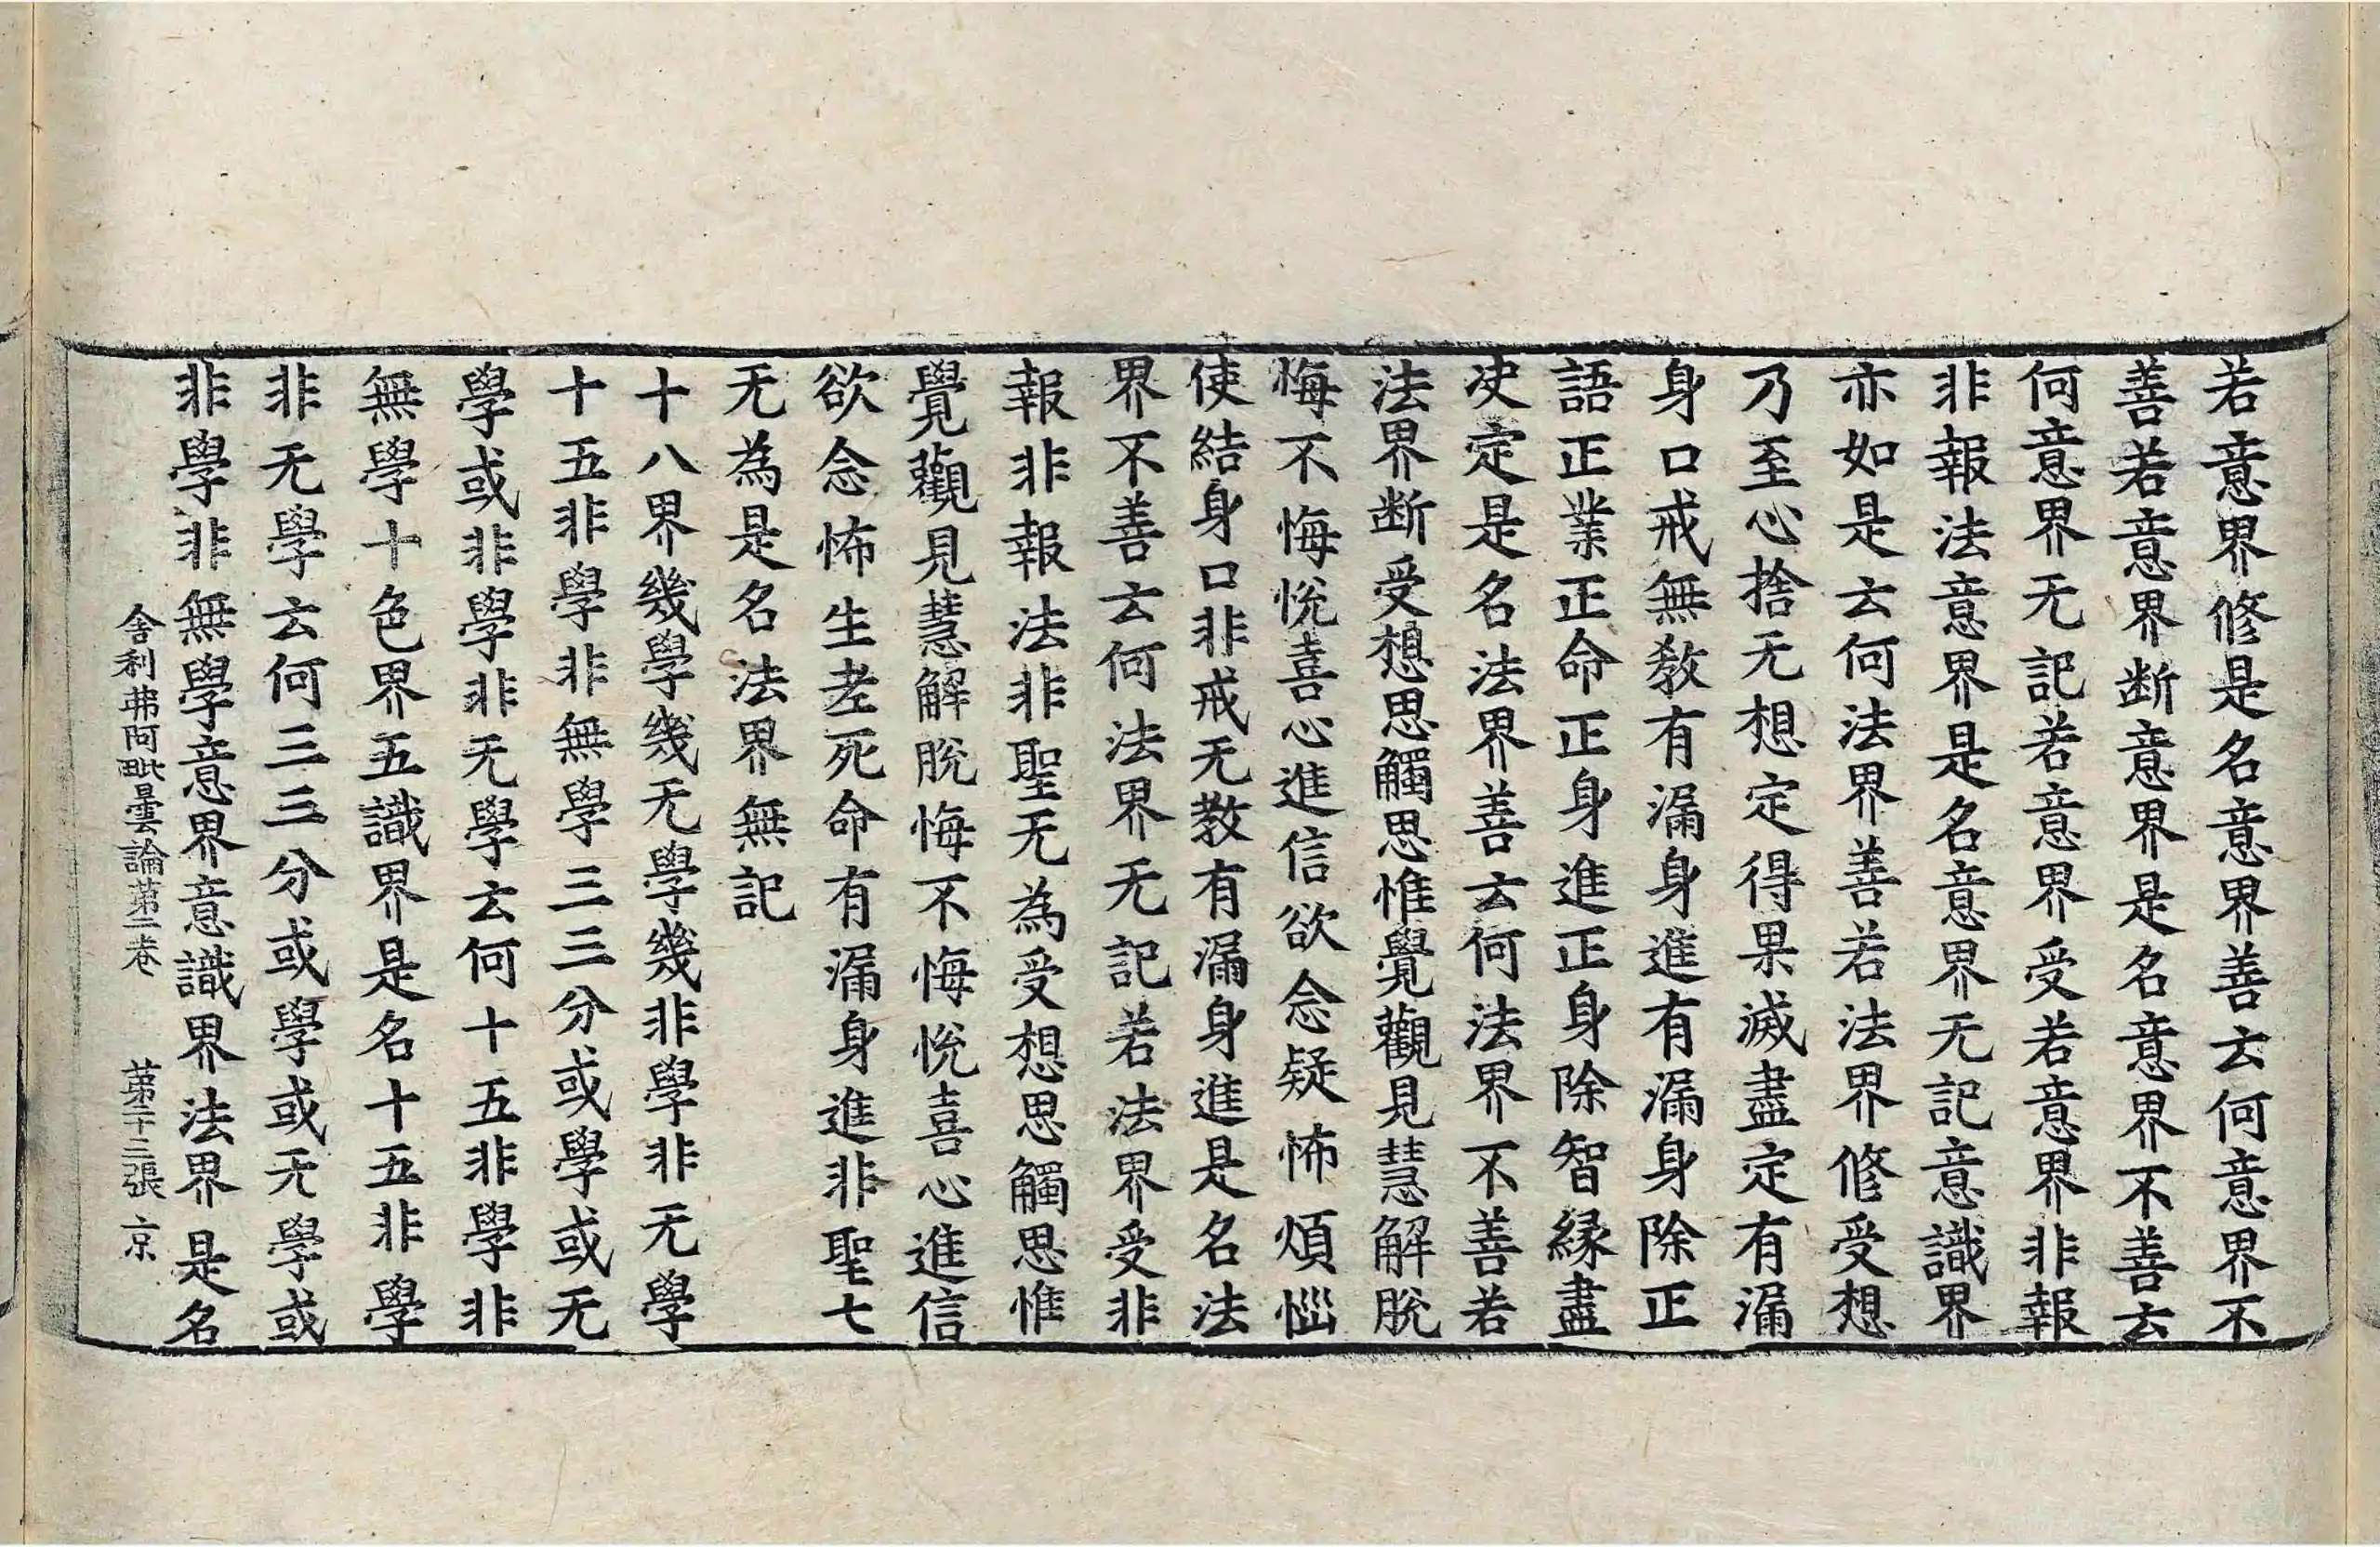 若意界修是名意界善云何意界不
善若意界断意界是名意界不善云
何意界无記若意界受若意界非報
非報法意界是名意界无記意識界
亦如是云何法界善若法界修受想
乃至心捨无想定得果滅盡定有漏
身口戒無教有漏身進有漏身除正
語正業正命正身進正身除智縁盡
决定是名法界善云何法界不善若
法界断受想思觸思惟覺觀見慧解脫
悔不悔悅喜心進信欲念疑怖煩惱
使結身口非戒无教有漏身進是名法
界不善云何法界无記若法界受非
報非報法非聖无為受想思觸思惟
覺觀見慧解脫悔不悔悅喜心進信
欲念怖生老死命有漏身進非聖七
无為是名法界無記
十八界幾學幾无學幾非學非无學
十五非學非無學三三分或學或无
學或非學非无學云何十五非學非
無學十色界五識界是名十五非學
非无學云何三三分或學或无學或
非學非無學意界意識界法界是名
舍利弗阿毗曇論第二卷 第二十三張 京